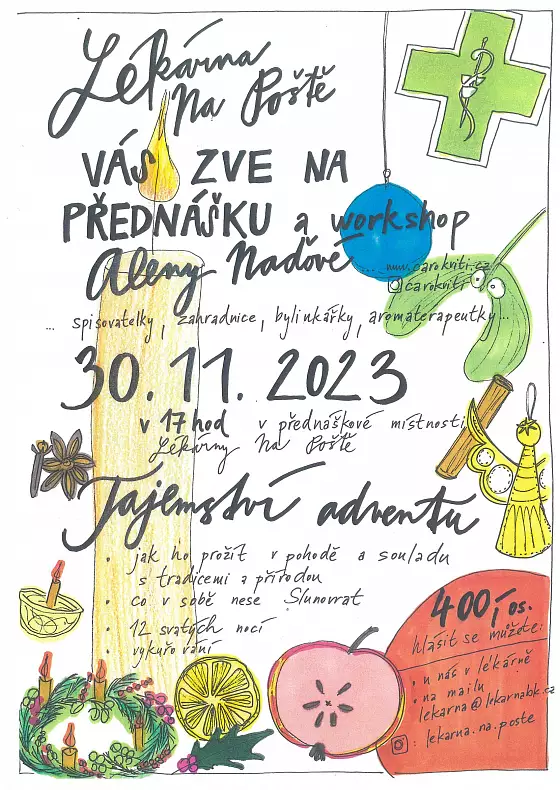 Lékárna
Na Poště
VÁS ZVE NA
PŘEDNÁŠKU a workshop
Aleny Naďové ... www.carokviti.cz
carokviti
... spisovatelky, zahradnice, bylinkářky, aromaterapeutky...
30. 11. 2023
v 17 hod v přednáškové místnosti
Lékárny Na Poště
Tajemství adventu
• jak ho prožít v pohodě a souladu
s tradicemi a přírodou
• co v sobě nese Slunovrat
• 12 svatých nocí
• vykuřování
400,- os.
Hlásit se můžete:
• u nás v lékárně
• na mailu
lekarna@lekarnabk.cz
: lekarna.na.poste